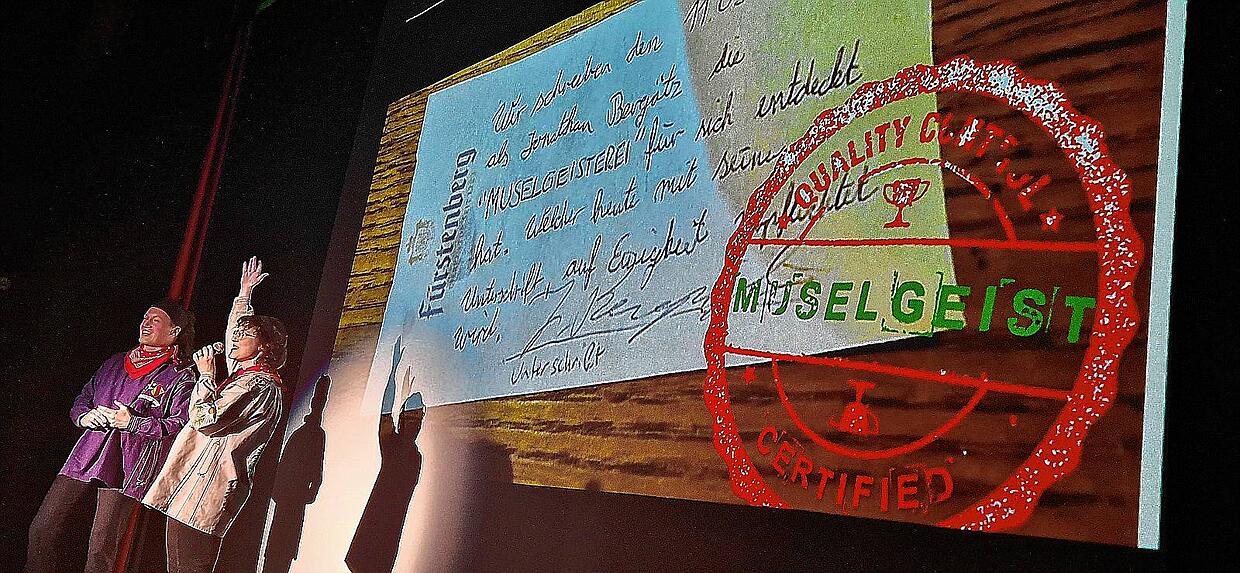 Fürstenberg
Wir schreiben den 11.0
als Jonathan Bergätz die
"MUSELGEISTEREI" für sich entdeckt
hat. Welcher heute mit seiner
Unterschrift, auf Ewigkeit verpflichtet
wird.
Unterschrift
QUALITY
MUSELGEIST
CERTIFIED